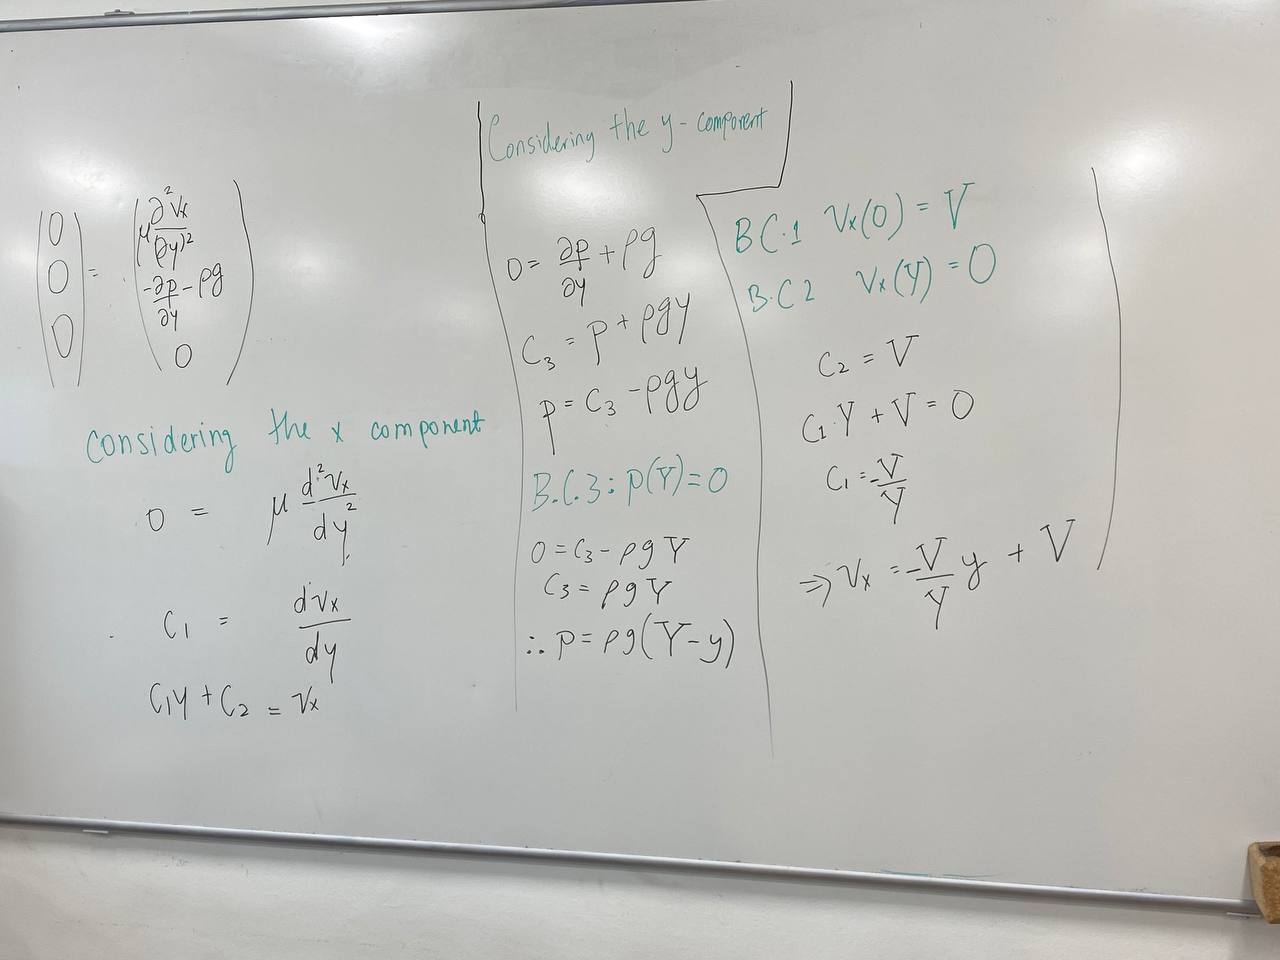 0
0
0
=
μ ∂²Vx/(∂y)²
-∂p/∂y - ρg
0
Considering the x component
0 = μ d²Vx/dy²
C₁ = dVx/dy
C₁y + C₂ = Vx
Considering the y-component
0 = ∂p/∂y + ρg
C₃ = p + ρgy
p = C₃ - ρgy
B.C.3: p(Y)=0
0 = C₃ - ρgY
C₃ = ρgY
∴ p = ρg(Y-y)
B C.1 Vx(0) = V
B.C 2 Vx(Y) = 0
C₂ = V
C₁·Y + V = 0
C₁ = -V/Y
⇒ Vx = -V/Y y + V